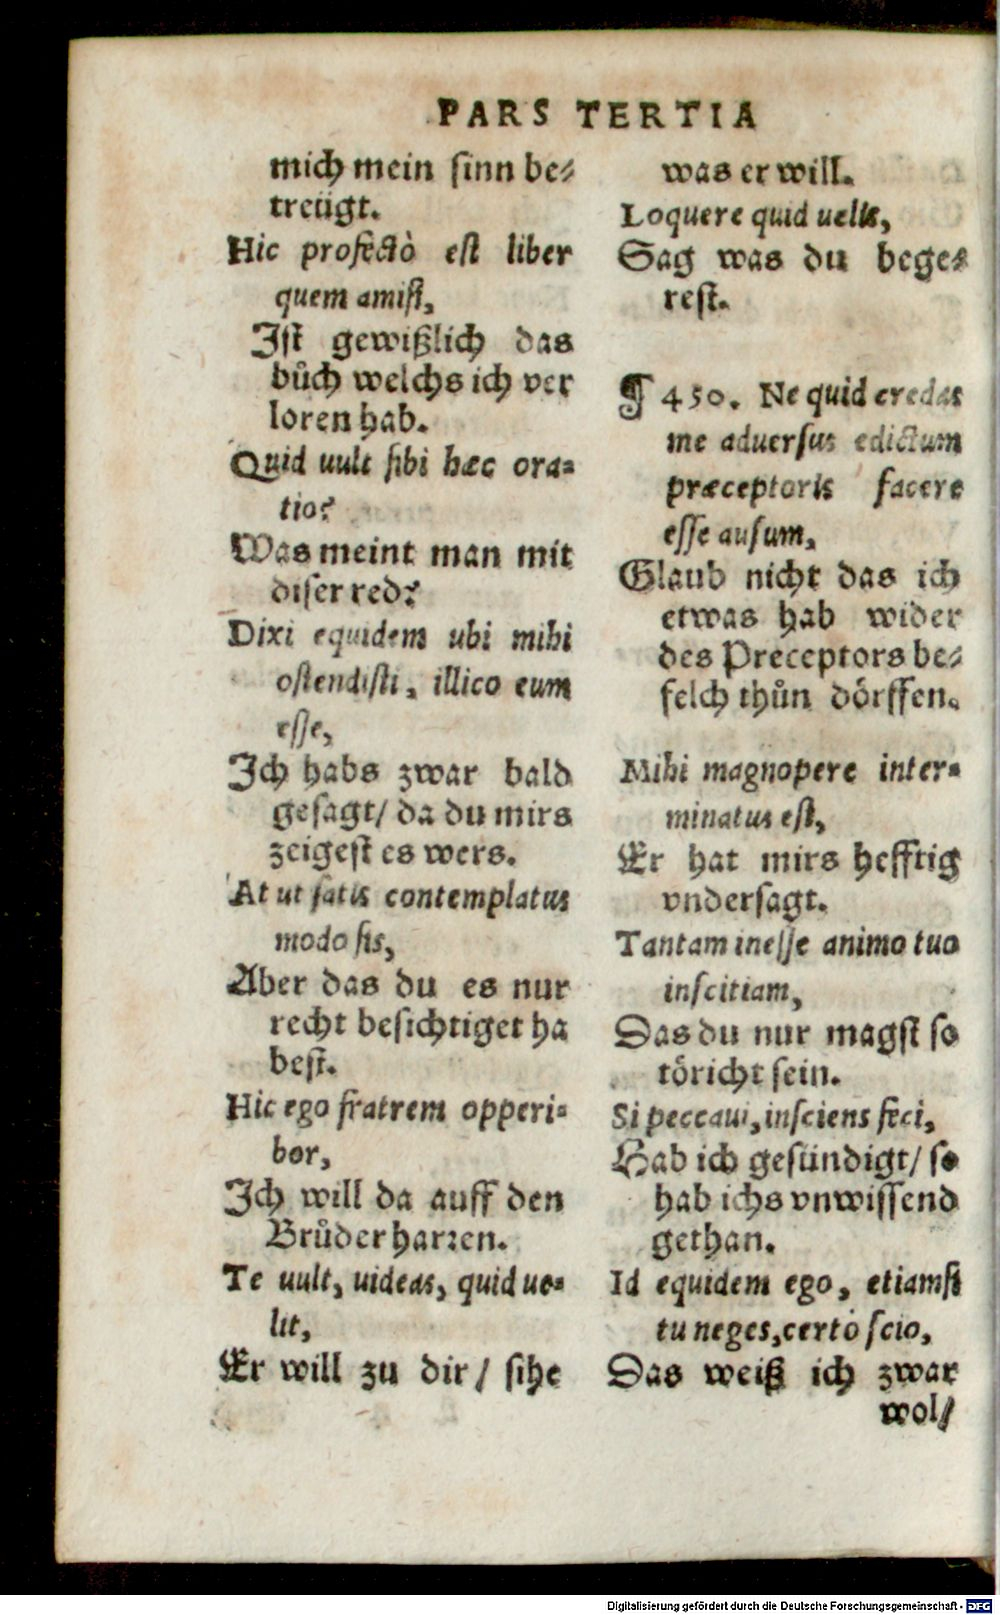 PARS TERTIA
mich mein sinn be⸗
treügt.
Hic profectò est liber
quem amisi,
Ist gewißlich das
bůch welchs ich ver
loren hab.
Quid uult sibi hæc ora⸗
tio?
Was meint man mit
diser red?
Dixi equidem ubi mihi
ostendisti, illico eum
esse,
Ich habs zwar bald
gesagt/ da du mirs
zeigest es wers.
At ut satis contemplatus
modo sis,
Aber das du es nur
recht besichtiget ha
best.
Hic ego fratrem opperi⸗
bor,
Ich will da auff den
Brůder harꝛen.
Te uult, uideas, quid ue⸗
lit,
Er will zu dir/ sihe
was er will.
Loquere quid uelis,
Sag was du bege⸗
rest.
¶ 450. Ne quid credas
me aduersus edictum
præceptoris facere
esse ausum,
Glaub nicht das ich
etwas hab wider
des Preceptors be⸗
felch thůn dörffen.
Mihi magnopere inter⸗
minatus est,
Er hat mirs hefftig
vndersagt.
Tantam inesse animo tuo
inscitiam,
Das du nur magst so
töricht sein.
Si peccaui, insciens feci,
Hab ich gesündigt/ so
hab ichs vnwissend
gethan.
Id equidem ego, etiamsi
tu neges, certò scio,
Das weiß ich zwar
wol/
Digitalisierung gefördert durch die Deutsche Forschungsgemeinschaft - DFG